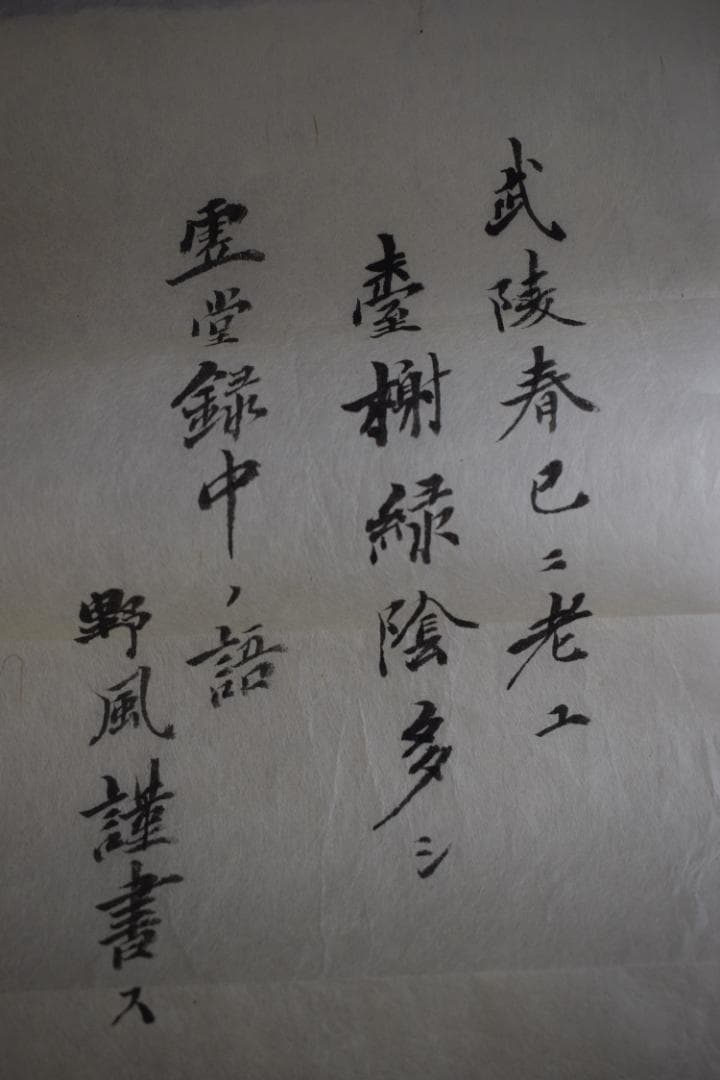 武陵春已ニ老エ
臺榭緑陰多シ
虚堂録中ノ語
野風謹書ス